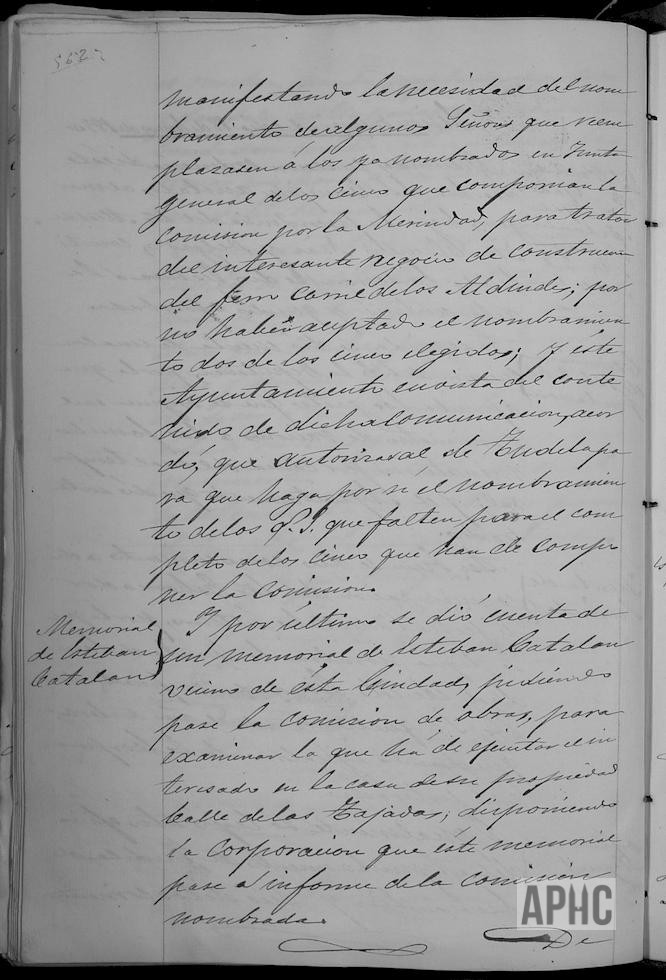 manifestando la necesidad del nom
bramiento de algunos Señores que reem
plazasen á los ya nombrados en Junta
general de los cinco que componian la
comision por la Merindad, para tratar
del interesante negocio de construccion
del ferro carril de los Alduides; por
no haber aceptado el nombramien
to dos de los cinco elegidos; y éste
Ayuntamiento en vista del conte
nido de dicha comunicacion, acor
dó, que autorizaral de Tudela pa
ra que haga por sí el nombramien
to de los S.S. que falten para el com
pleto de los cinco que han de compo
ner la comision.
Memorial
de Esteban
Catalan
Y por último se dió cuenta de
un memorial de Esteban Catalan
vecino de ésta Ciudad, pidiendo
pase la comision de obras, para
examinar la que há de ejecutar el in
teresado en la casa de su propiedad
Calle de las Tajadas; disponiendo
la Corporacion que éste memorial
pase á informe de la comisión
nombrada.
De
APHC